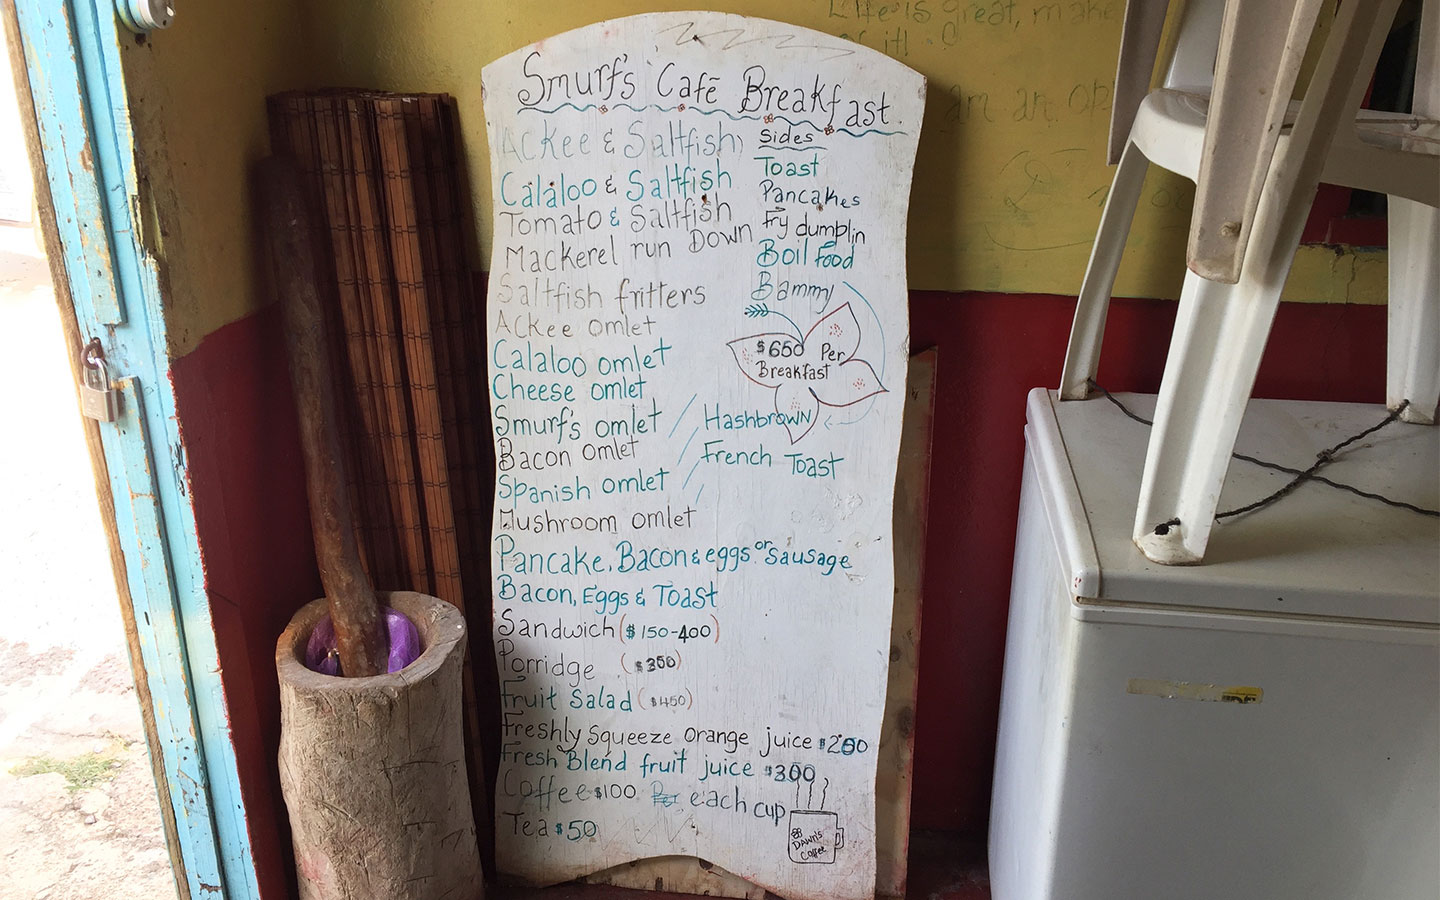 Smurf's Café Breakfast.
Ackee & Saltfish
Calaloo & Saltfish
Tomato & Saltfish
Mackerel run Down
Saltfish fritters
Ackee omlet
Calaloo omlet
Cheese omlet
Smurf's omlet
Bacon omlet
Spanish omlet
Mushroom omlet
Pancake, Bacon & eggs or Sausage
Bacon, Eggs & Toast
Sandwich ($150-400)
Porridge ($350)
Fruit Salad ($450)
Freshly Squeeze orange juice $200
Fresh Blend fruit juice $300
Coffee $100 each cup
Tea $50
Sides
Toast
Pancakes
Fry dumplin
Boil food
Bammy
$650 Per
Breakfast
Hashbrown
French Toast
Dawn's
Coffee
Life is great, make
of it!
am an